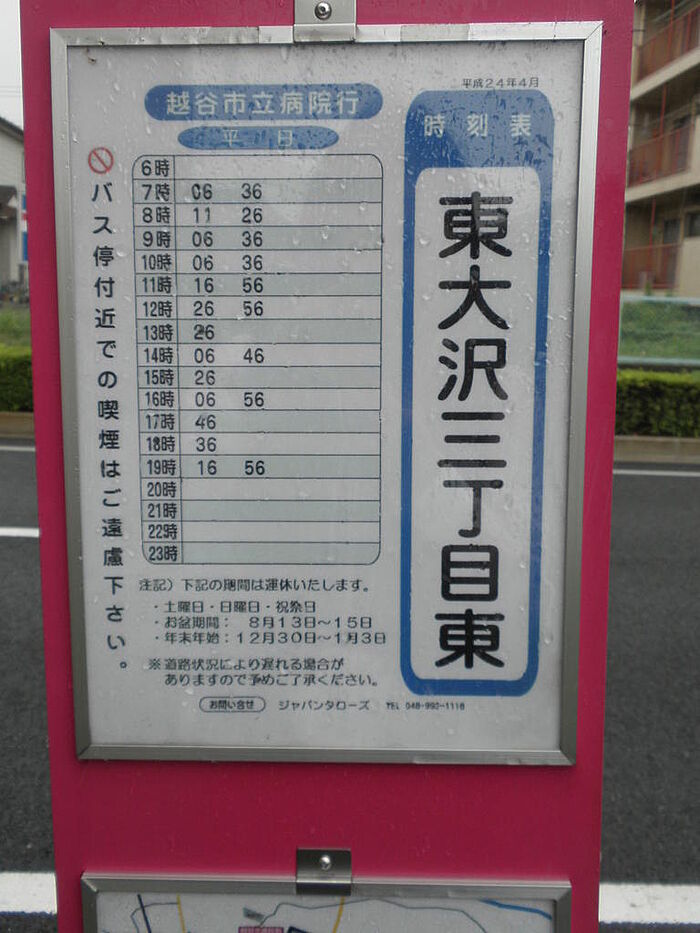 平成24年4月
時刻表
東大沢三丁目東
越谷市立病院行
平日
6時
7時 06 36
8時 11 26
9時 06 36
10時 06 36
11時 16 56
12時 26 56
13時 26
14時 06 46
15時 26
16時 06 56
17時 46
18時 36
19時 16 56
20時
21時
22時
23時
バス停付近での喫煙はご遠慮下さい。
注記）下記の期間は運休いたします。
・土曜日・日曜日・祝祭日
・お盆期間： 8月13日～15日
・年末年始：12月30日～1月3日
※道路状況により遅れる場合が
ありますので予めご了承ください。
お問い合せ ジャパンタローズ TEL 048-992-1116